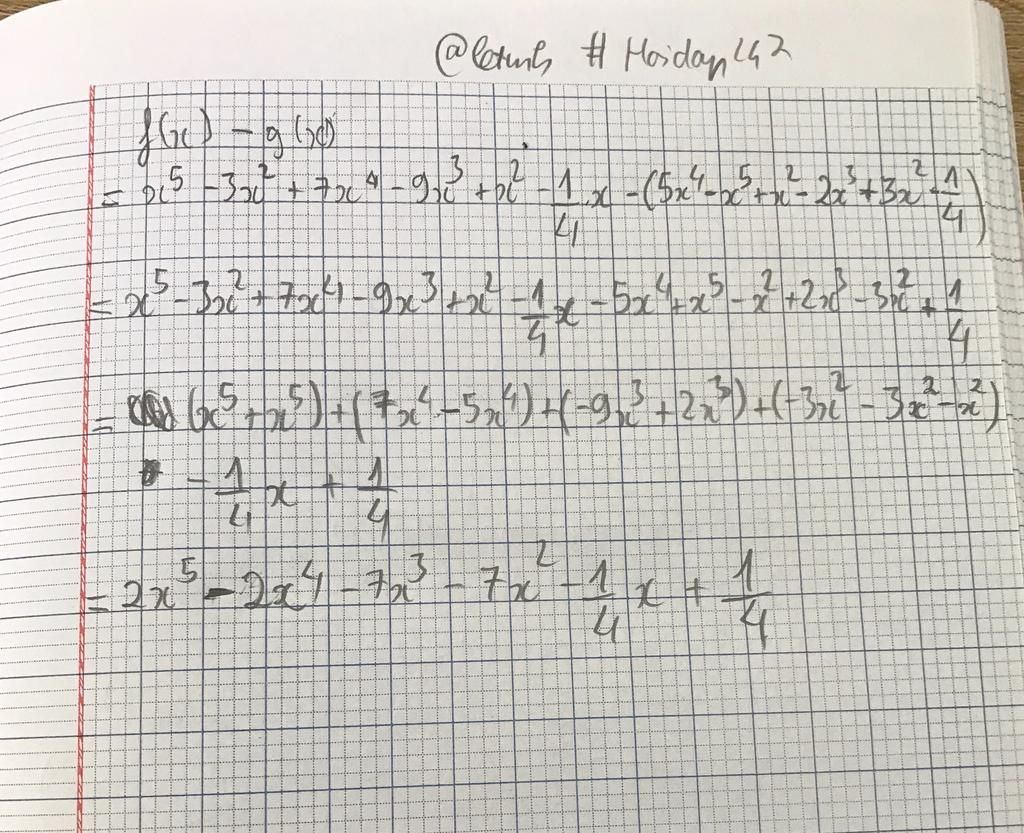 # Hoidap247
f(x) - g(x)
= x⁵ - 3x² + 7x⁴ - 9x³ + x² - 1/4 x - (5x⁴ - x⁵ + x² - 2x³ + 3x² - 1/4)
= x⁵ - 3x² + 7x⁴ - 9x³ + x² - 1/4 x - 5x⁴ + x⁵ - x² + 2x³ - 3x² + 1/4
= (x⁵ + x⁵) + (7x⁴ - 5x⁴) + (-9x³ + 2x³) + (-3x² - 3x² - x²)
- 1/4 x + 1/4
= 2x⁵ - 2x⁴ - 7x³ - 7x² - 1/4 x + 1/4